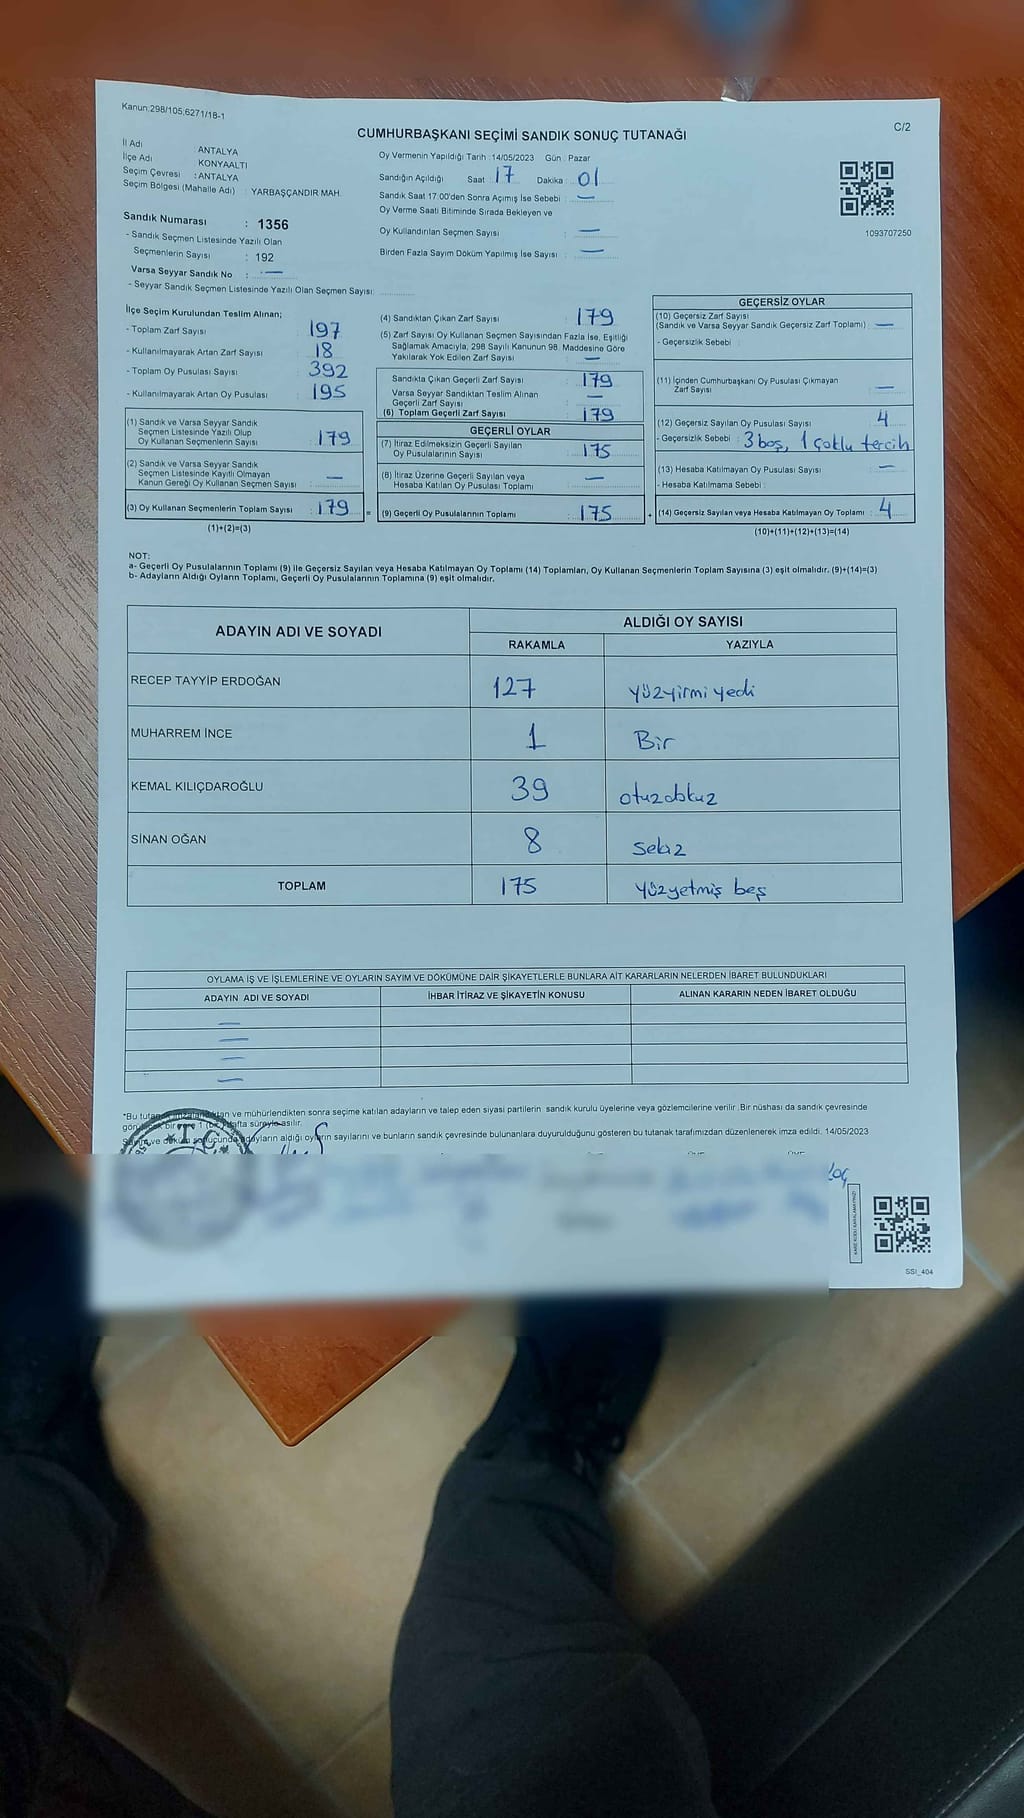 Kanun:298/105,6271/18-1
C/2
CUMHURBAŞKANI SEÇİMİ SANDIK SONUÇ TUTANAĞI
İl Adı : ANTALYA
İlçe Adı : KONYAALTI
Seçim Çevresi : ANTALYA
Seçim Bölgesi (Mahalle Adı) : YARBAŞÇANDIR MAH.
Oy Vermenin Yapıldığı Tarih :14/05/2023 Gün : Pazar
Sandığın Açıldığı Saat : 17 Dakika : 01
Sandık Saat 17:00'den Sonra Açımış İse Sebebi : —
Oy Verme Saati Bitiminde Sırada Bekleyen ve
Oy Kullandırılan Seçmen Sayısı : —
Birden Fazla Sayım Döküm Yapılmış İse Sayısı : —
1093707250
Sandık Numarası : 1356
- Sandık Seçmen Listesinde Yazılı Olan
Seçmenlerin Sayısı : 192
Varsa Seyyar Sandık No : —
- Seyyar Sandık Seçmen Listesinde Yazılı Olan Seçmen Sayısı:
İlçe Seçim Kurulundan Teslim Alınan;
- Toplam Zarf Sayısı : 197
- Kullanılmayarak Artan Zarf Sayısı : 18
- Toplam Oy Pusulası Sayısı : 392
- Kullanılmayarak Artan Oy Pusulası : 195
(1) Sandık ve Varsa Seyyar Sandık
Seçmen Listesinde Yazılı Olup
Oy Kullanan Seçmenlerin Sayısı : 179
(2) Sandık ve Varsa Seyyar Sandık
Seçmen Listesinde Kayıtlı Olmayan
Kanun Gereği Oy Kullanan Seçmen Sayısı : —
(3) Oy Kullanan Seçmenlerin Toplam Sayısı : 179
(1)+(2)=(3)
(4) Sandıktan Çıkan Zarf Sayısı : 179
(5) Zarf Sayısı Oy Kullanan Seçmen Sayısından Fazla İse, Eşitliği
Sağlamak Amacıyla, 298 Sayılı Kanunun 98. Maddesine Göre
Yakılarak Yok Edilen Zarf Sayısı : —
Sandıkta Çıkan Geçerli Zarf Sayısı : 179
Varsa Seyyar Sandıktan Teslim Alınan
Geçerli Zarf Sayısı : —
(6) Toplam Geçerli Zarf Sayısı : 179
GEÇERLİ OYLAR
(7) İtiraz Edilmeksizin Geçerli Sayılan
Oy Pusulalarının Sayısı : 175
(8) İtiraz Üzerine Geçerli Sayılan veya
Hesaba Katılan Oy Pusulası Toplamı : —
= (9) Geçerli Oy Pusulalarının Toplamı : 175
GEÇERSİZ OYLAR
(10) Geçersiz Zarf Sayısı
(Sandık ve Varsa Seyyar Sandık Geçersiz Zarf Toplamı) : —
- Geçersizlik Sebebi :
(11) İçinden Cumhurbaşkanı Oy Pusulası Çıkmayan
Zarf Sayısı : —
(12) Geçersiz Sayılan Oy Pusulası Sayısı : 4
- Geçersizlik Sebebi : 3 boş, 1 çoklu tercih
(13) Hesaba Katılmayan Oy Pusulası Sayısı : —
- Hesaba Katılmama Sebebi :
+ (14) Geçersiz Sayılan veya Hesaba Katılmayan Oy Toplamı : 4
(10)+(11)+(12)+(13)=(14)
NOT:
a- Geçerli Oy Pusulalarının Toplamı (9) ile Geçersiz Sayılan veya Hesaba Katılmayan Oy Toplamı (14) Toplamları, Oy Kullanan Seçmenlerin Toplam Sayısına (3) eşit olmalıdır. (9)+(14)=(3)
b- Adayların Aldığı Oyların Toplamı, Geçerli Oy Pusulalarının Toplamına (9) eşit olmalıdır.
ADAYIN ADI VE SOYADI
ALDIĞI OY SAYISI
RAKAMLA YAZIYLA
RECEP TAYYİP ERDOĞAN 127 yüzyirmi yedi
MUHARREM İNCE 1 Bir
KEMAL KILIÇDAROĞLU 39 otuzdokuz
SİNAN OĞAN 8 Sekiz
TOPLAM 175 yüzyetmiş beş
OYLAMA İŞ VE İŞLEMLERİNE VE OYLARIN SAYIM VE DÖKÜMÜNE DAİR ŞİKAYETLERLE BUNLARA AİT KARARLARIN NELERDEN İBARET BULUNDUKLARI
ADAYIN ADI VE SOYADI İHBAR İTİRAZ VE ŞİKAYETİN KONUSU ALINAN KARARIN NEDEN İBARET OLDUĞU
—
—
—
—
*Bu tutanak ve mühürlendikten sonra seçime katılan adayların ve talep eden siyasi partilerin sandık kurulu üyelerine veya gözlemcilerine verilir. Bir nüshası da sandık çevresinde
bir yere 1 (bir) hafta süreyle asılır.
Sayım ve döküm sonucunda adayların aldığı oyların sayılarını ve bunların sandık çevresinde bulunanlara duyurulduğunu gösteren bu tutanak tarafımızdan düzenlenerek imza edildi. 14/05/2023
T.C.
SSI_404